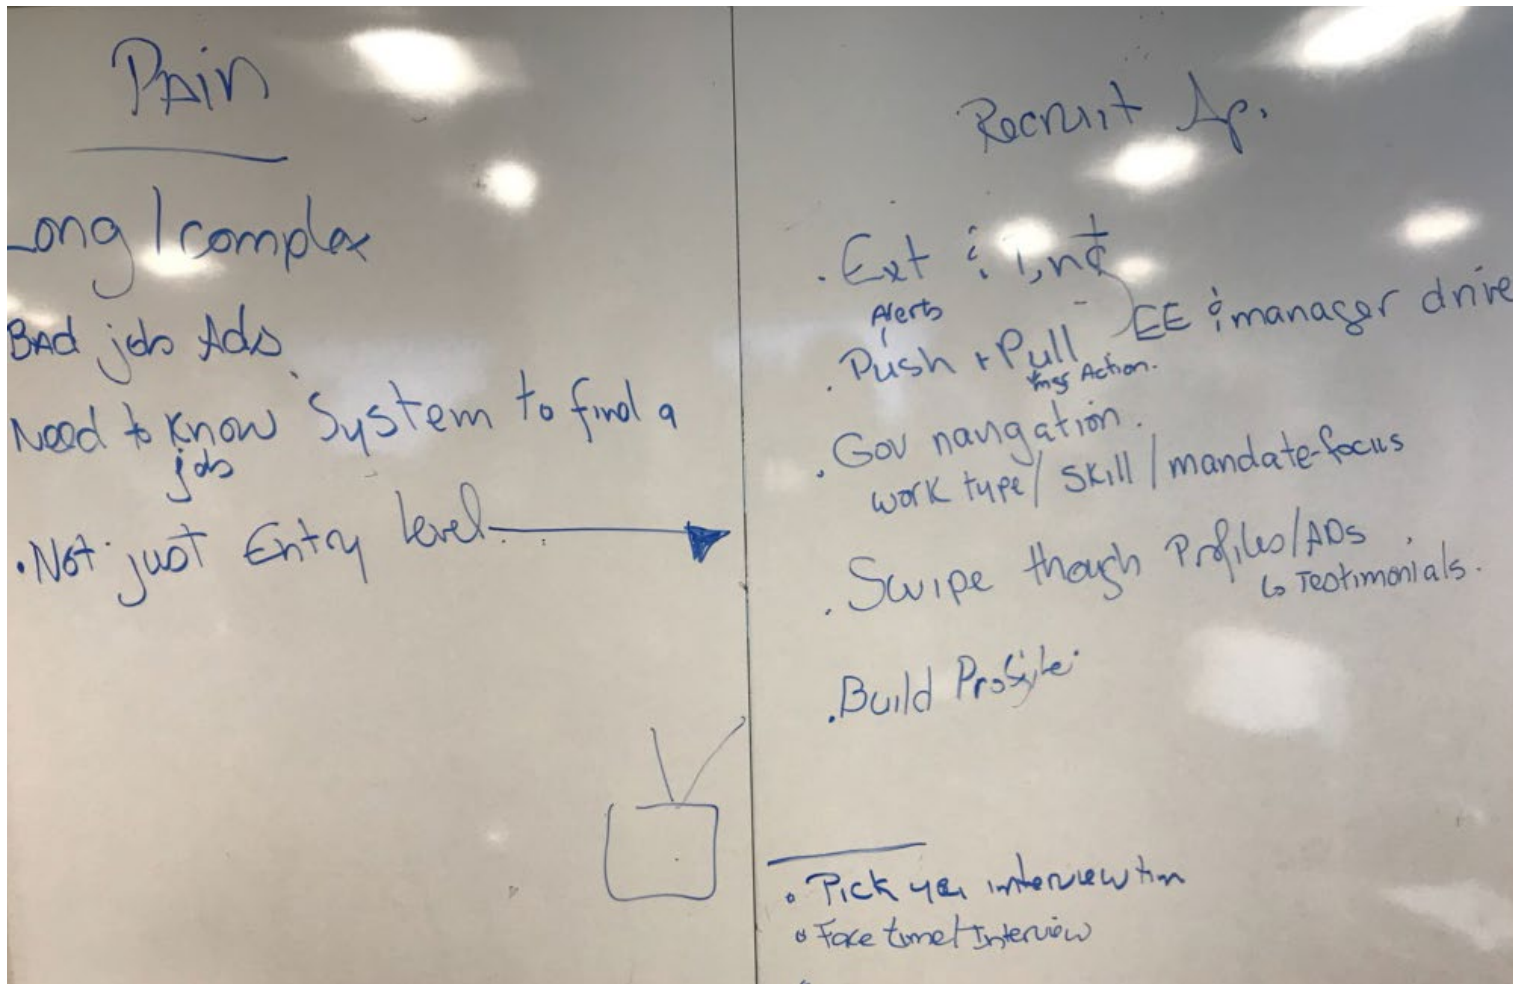 PAIN
Long / complex
BAD job Ads
Need to know System to find a
job
• Not just Entry level
Recruit Ap.
• Ext & Int
Alerts
EE & manager drive
• Push + Pull
Action.
• Gov navigation.
work type / skill / mandate-focus
• Swipe though Profiles/ADs
↳ Testimonials.
• Build Profile
• Pick interview
• Face time / Interview